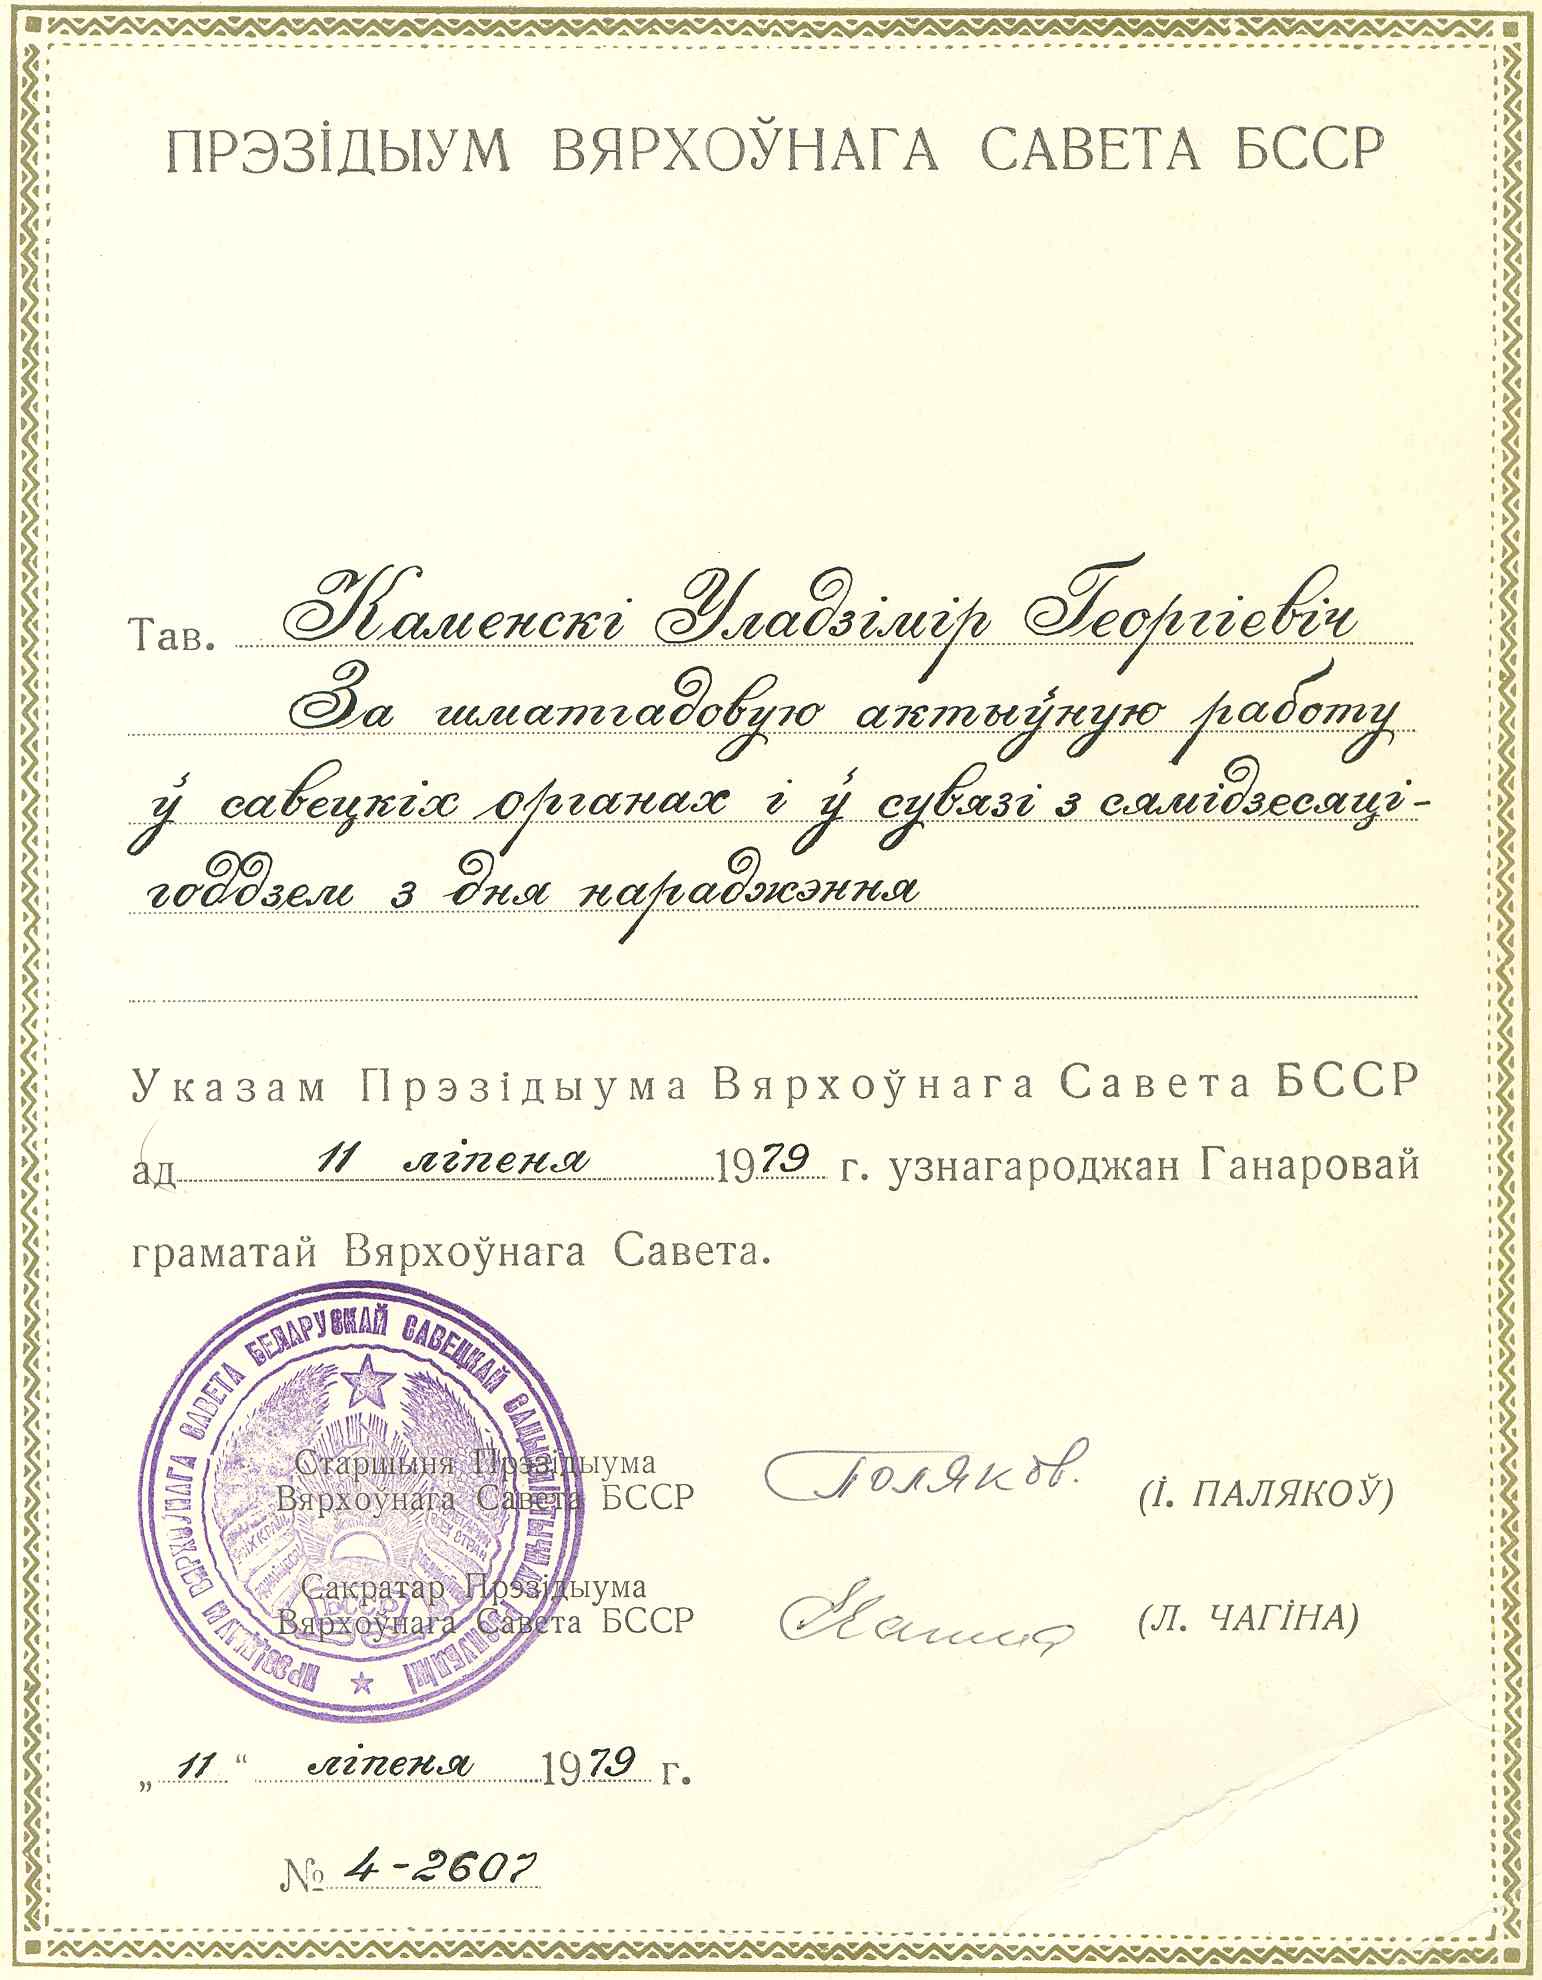 ПРЭЗІДЫУМ ВЯРХОЎНАГА САВЕТА БССР
Тав. Каменскі Уладзімір Георгіевіч
За шматгадовую актыўную работу
ў савецкіх органах і ў сувязі з сямідзесяці-
годдзем з дня нараджэння
Указам Прэзідыума Вярхоўнага Савета БССР
ад 11 ліпеня 1979 г. узнагароджан Ганаровай
граматай Вярхоўнага Савета.
ПРЭЗІДЫУМ ВЯРХОЎНАГА САВЕТА БЕЛАРУСКАЙ САВЕЦКАЙ САЦЫЯЛІСТЫЧНАЙ РЭСПУБЛІКІ
БССР
Старшыня Прэзідыума
Вярхоўнага Савета БССР
Поляков.
(І. ПАЛЯКОЎ)
Сакратар Прэзідыума
Вярхоўнага Савета БССР
(Л. ЧАГІНА)
„11“ ліпеня 1979 г.
№ 4-2607